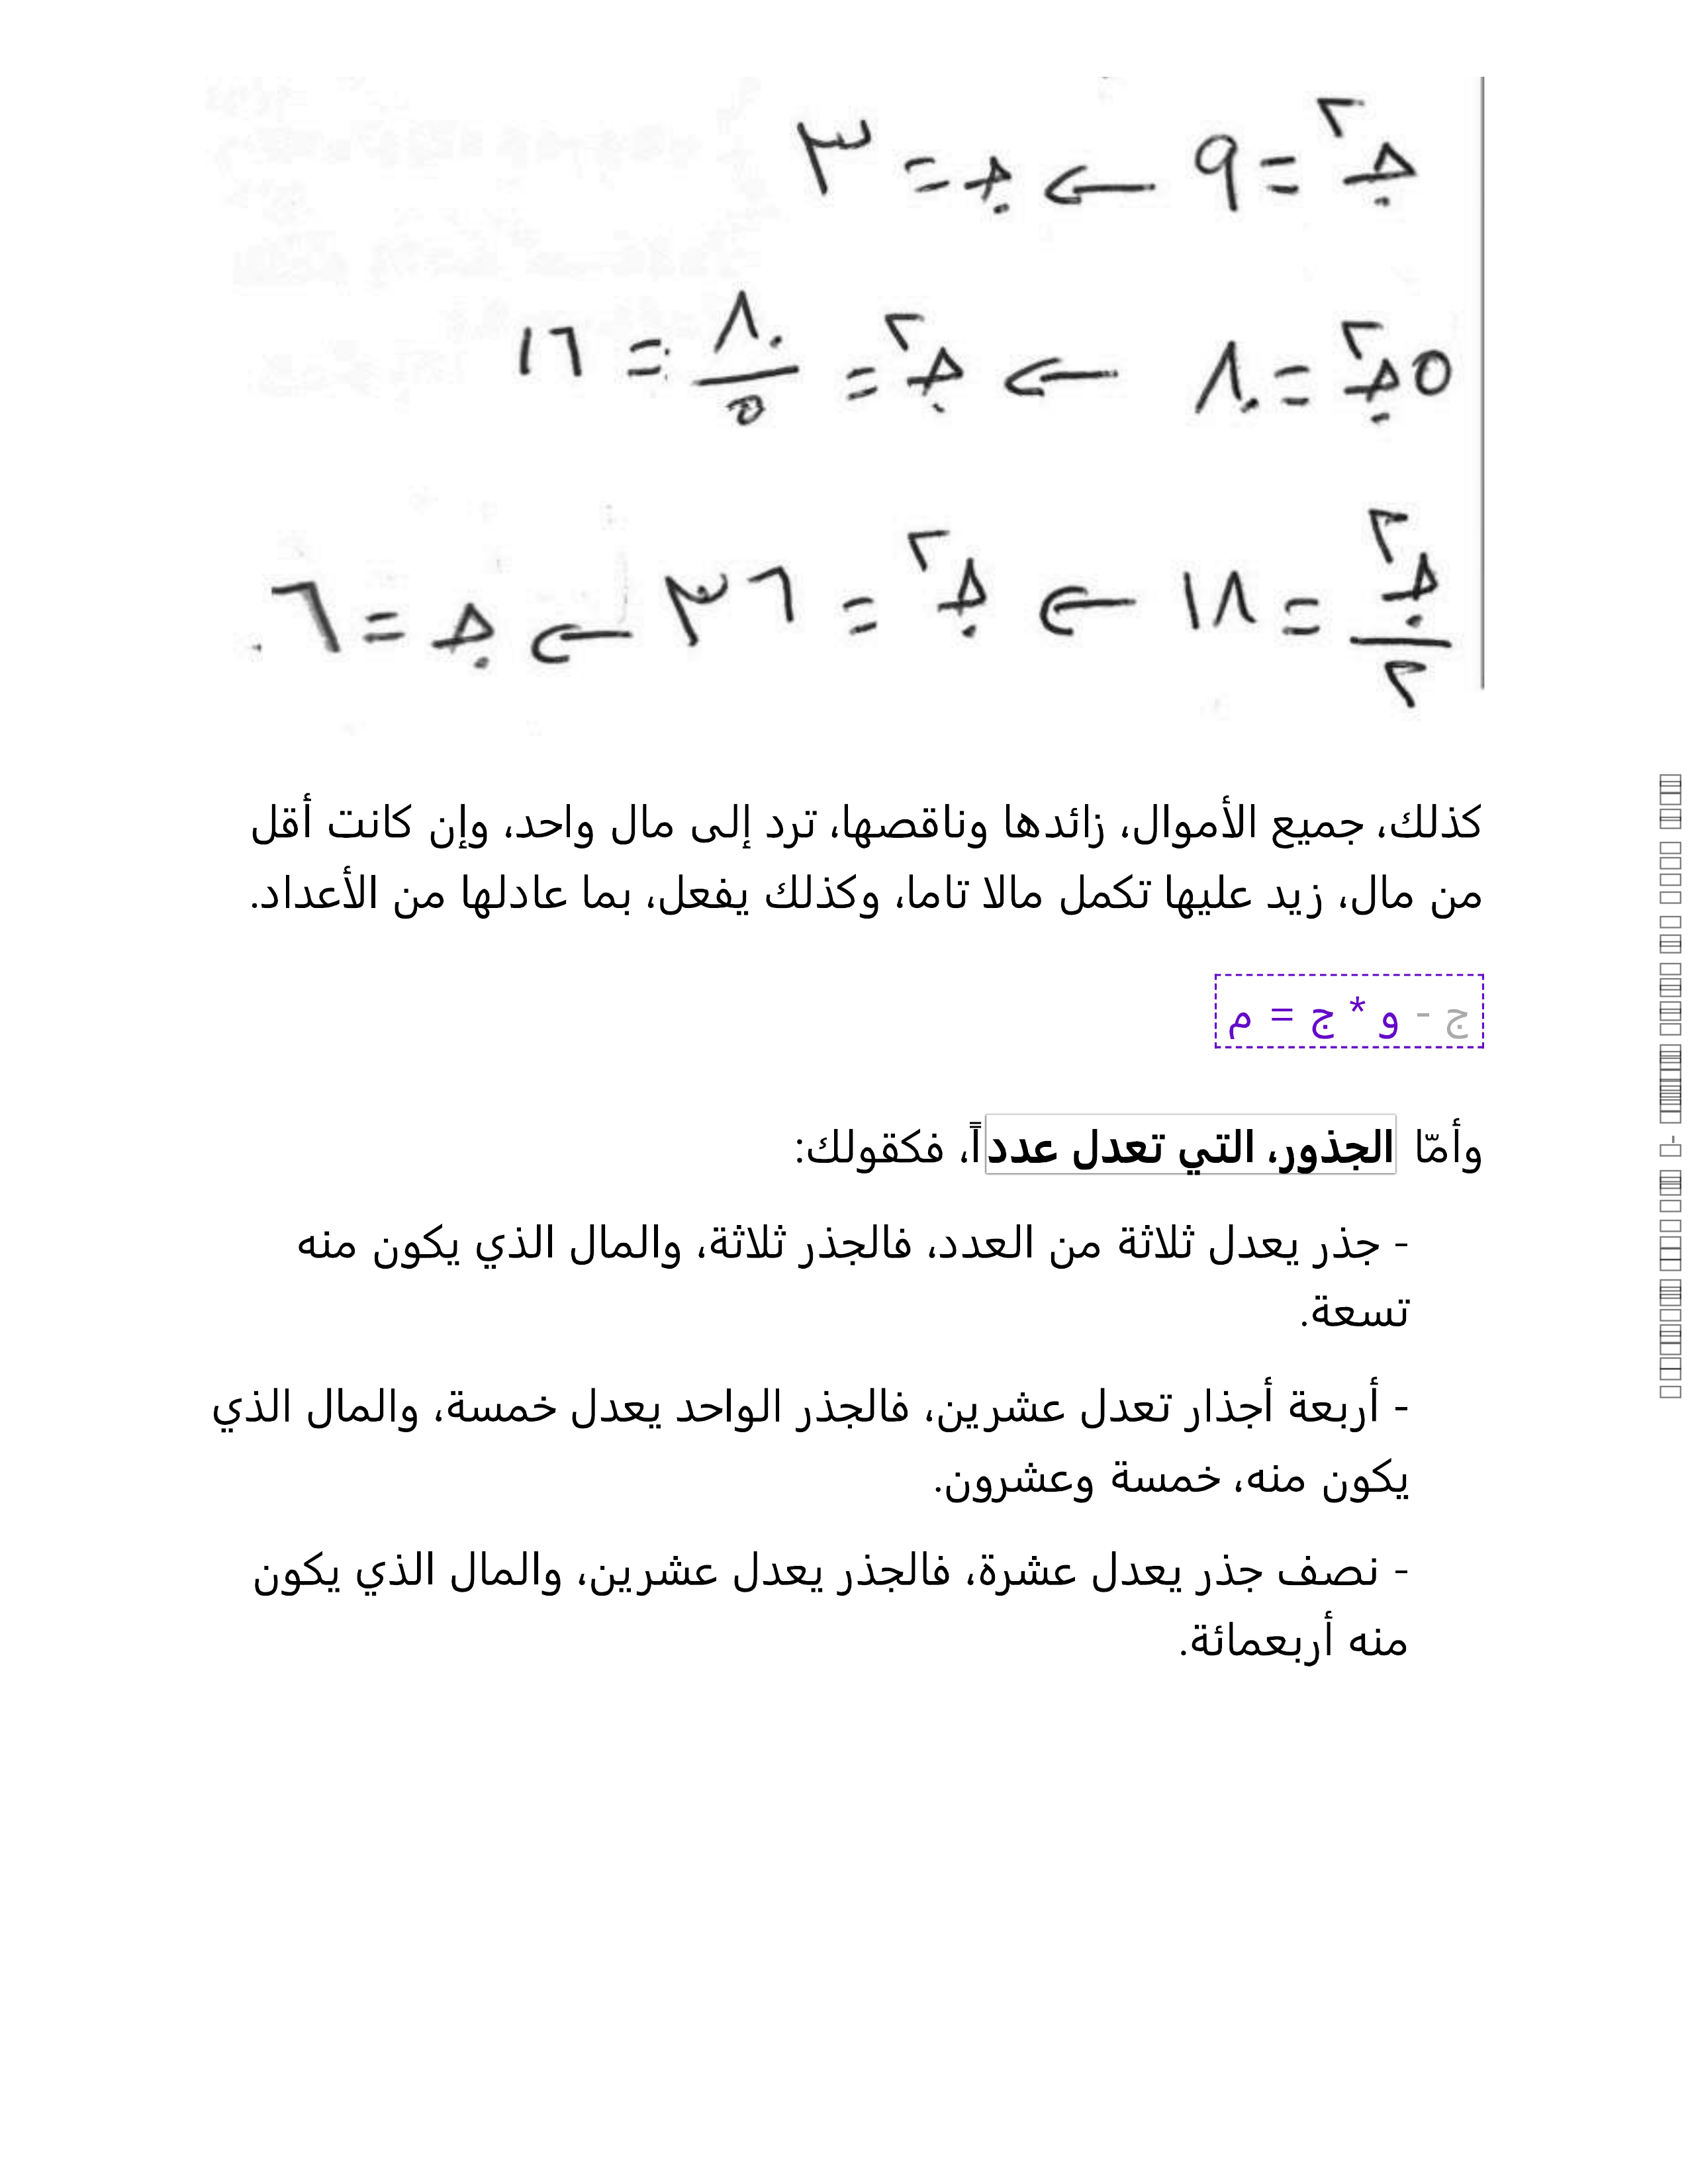 جـ² = ٩ ← جـ = ٣
٥جـ² = ٨٠ ← جـ² = ٨٠/٥ = ١٦
جـ²/٢ = ١٨ ← جـ² = ٣٦ ← جـ = ٦
كذلك، جميع الأموال، زائدها وناقصها، ترد إلى مال واحد، وإن كانت أقل
من مال، زيد عليها تكمل مالا تاما، وكذلك يفعل، بما عادلها من الأعداد.
ج - و * ج = م
وأمّا الجذور، التي تعدل عدداً، فكقولك:
- جذر يعدل ثلاثة من العدد، فالجذر ثلاثة، والمال الذي يكون منه
تسعة.
- أربعة أجذار تعدل عشرين، فالجذر الواحد يعدل خمسة، والمال الذي
يكون منه، خمسة وعشرون.
- نصف جذر يعدل عشرة، فالجذر يعدل عشرين، والمال الذي يكون
منه أربعمائة.